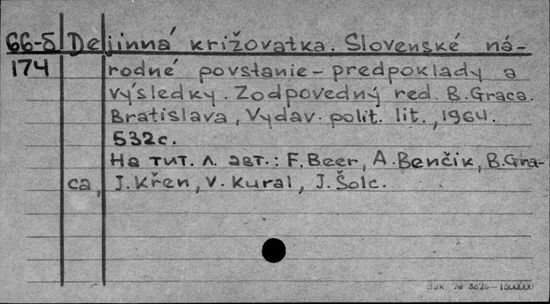 66-5 Dejinná križovatka. Slovenské ná-
174 rodné povstanie - predpoklady a
výsledky. Zodpovedný red. B. Graca.
Bratislava, Vydav. polit. lit., 1964.
532с.
На тит. л. авт.: F. Beer, A. Benčik, B. Gra-
ca, J. Křen, V. Kural, J. Šolc.
Зак. № 3826—1500000